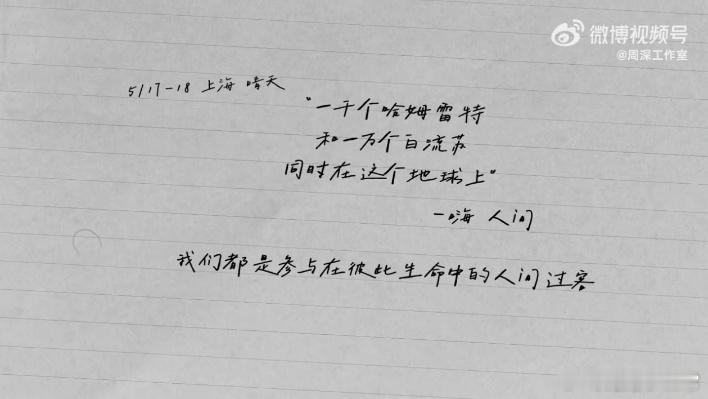 微博视频号
@周深工作室
5/17-18 上海 晴天
"一千个哈姆雷特
和一万个白流苏
同时在这个地球上"
一嗨 人间
我们都是参与在彼此生命中的人间过客